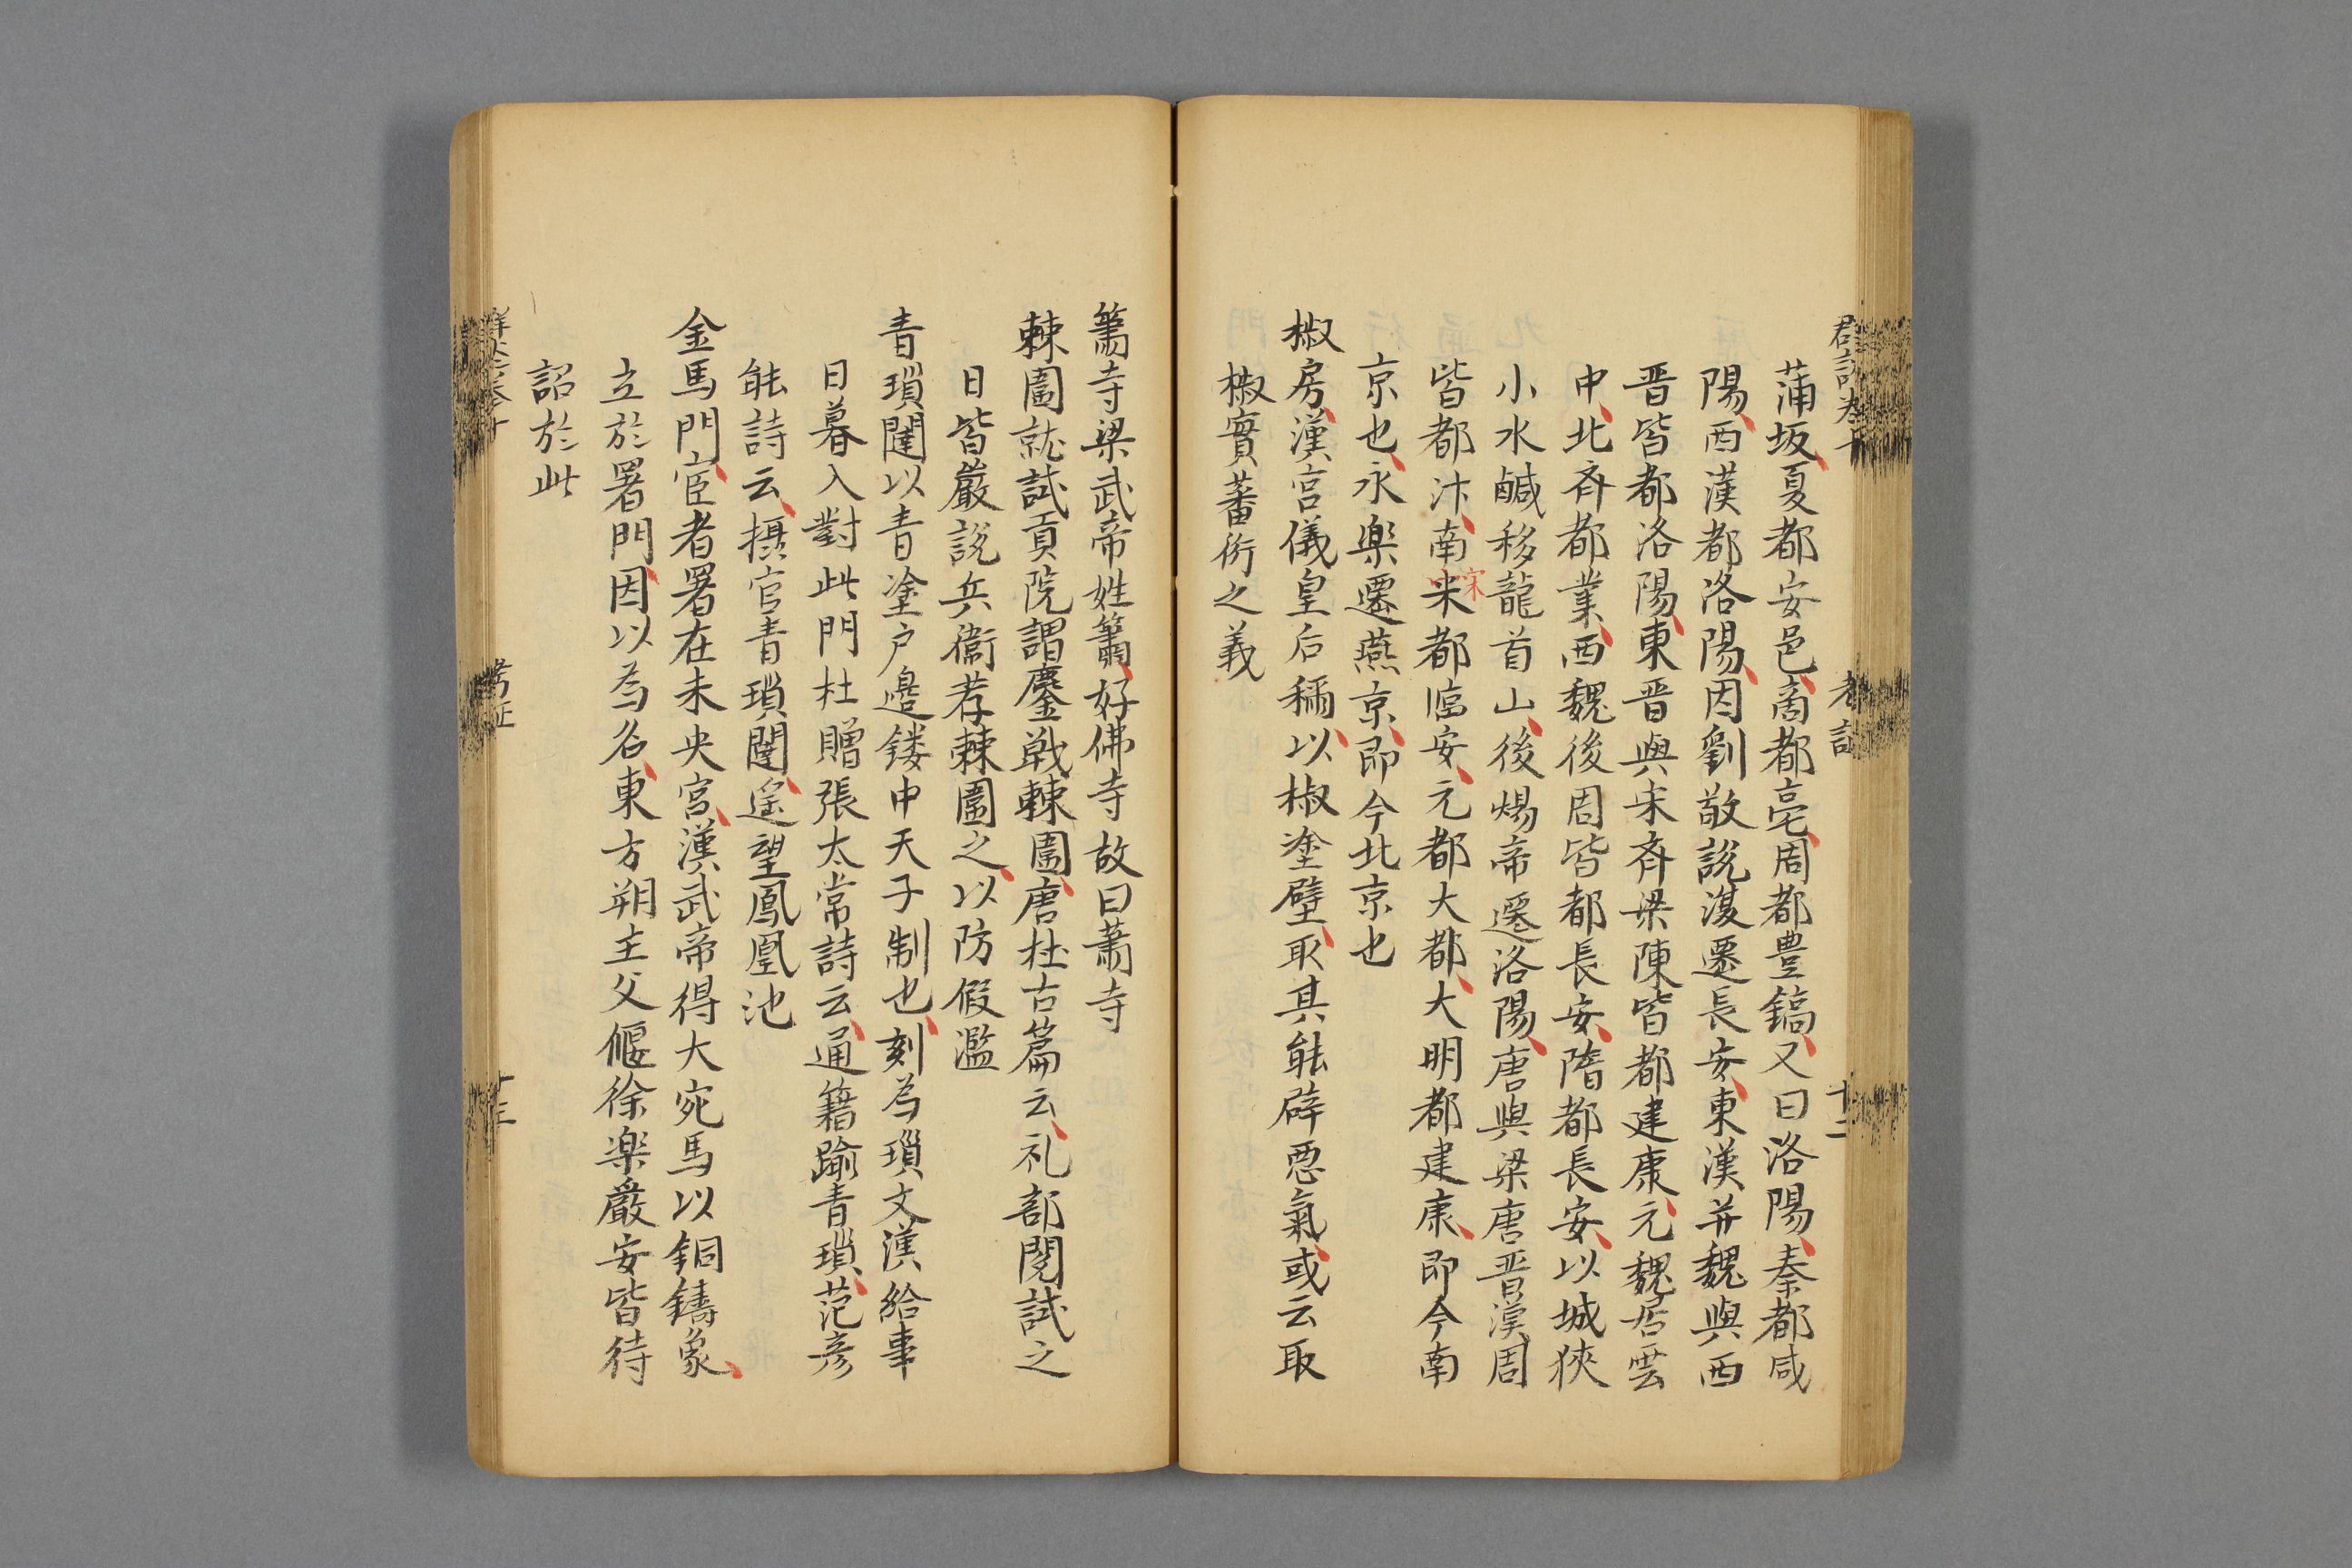 蒲坂夏都安邑商都亳周都豊鎬又曰洛陽秦都咸
陽西漢都洛陽因劉敬說復遷長安東漢并魏與西
晋皆都洛陽東晋與宋斉梁陳皆都建康元魏居雲
中北斉都業西魏後周皆都長安隋都長安以城狹
小水鹹移龍首山後煬帝遷洛陽唐與梁唐晋漢周
皆都汴南宋都臨安元都大都大明都建康即今南
宋
京也永楽遷燕京即今北京也
椒房漢宮儀皇后稱以椒塗壁取其能辟惡氣或云取
椒實蕃衍之義
簫寺梁武帝姓簫好佛寺故曰蕭寺
棘圍就試貢院謂鏖戦棘圍唐杜古篇云礼部閱試之
日皆嚴設兵衞荐棘圍之以防假濫
青瑣闥以青塗户邉鏤中天子制也刻為瑣文漢給事
日暮入對此門杜贈張太常詩云通籍踰青瑣范彦
能詩云摂官青瑣闥遥望鳳凰池
金馬門宦者署在未央宮漢武帝得大宛馬以銅鑄象
立於署門因以為名東方朔主父偃徐楽嚴安皆待
詔於此